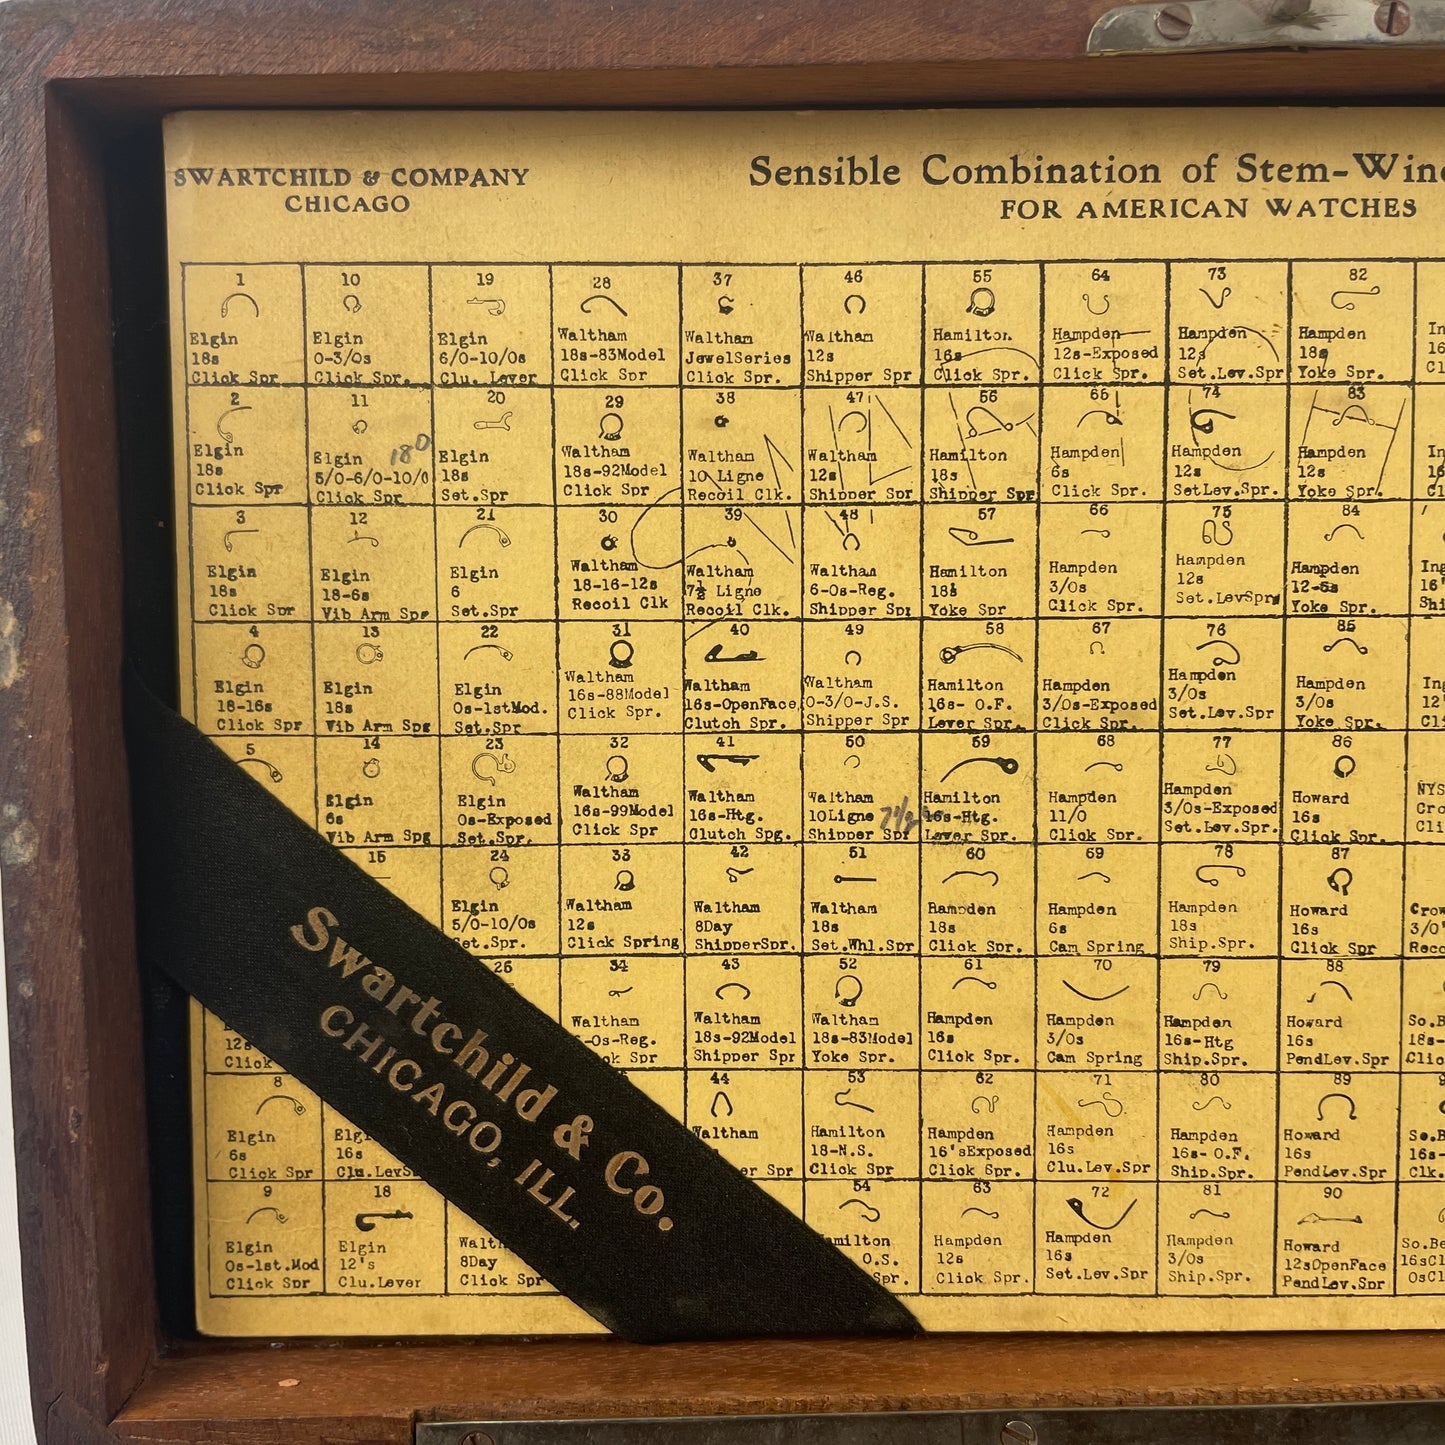 SWARTCHILD & COMPANY
CHICAGO
Sensible Combination of Stem-Wind
FOR AMERICAN WATCHES
1 10 19 28 37 46 55 64 73 82
Elgin Elgin Elgin Waltham Waltham Waltham Hamilton Hampden Hampden Hampden In
18s 0-3/0s 6/0-10/0s 18s-83Model JewelSeries 12s 16s 12s-Exposed 12s 18s 16
Click Spr Click Spr. Clu. Lever Click Spr Click Spr. Shipper Spr Click Spr. Click Spr. Set.Lev.Spr Yoke Spr. Cl
2 11 20 29 38 47 56 65 74 83
180
Elgin Elgin Elgin Waltham Waltham Waltham Hamilton Hampden Hampden Hampden In
18s 5/0-6/0-10/0 18s 18s-92Model 10 Ligne 12s 18s 6s 12s 12s 16
Click Spr Click Spr Set.Spr Click Spr Recoil Clk. Shipper Spr Shipper Spr Click Spr. SetLev.Spr. Yoke Spr. Cl
3 12 21 30 39 48 57 66 75 84
Elgin Elgin Elgin Waltham Waltham Waltham Hamilton Hampden Hampden Hampden Ing
18s 18-6s 6 18-16-12s 7½ Ligne 6-0s-Reg. 18s 3/0s 12s 12-6s 16
Click Spr Vib Arm Spr Set.Spr Recoil Clk Recoil Clk. Shipper Spr Yoke Spr Click Spr. Set.LevSpr. Yoke Spr. Shi
4 13 22 31 40 49 58 67 76 85
Elgin Elgin Elgin Waltham Waltham Waltham Hamilton Hampden Hampden Hampden Ing
18-16s 18s 0s-1stMod. 16s-88Model 16s-OpenFace 0-3/0-J.S. 16s- O.F. 3/0s-Exposed 3/0s 3/0s 12
Click Spr Vib Arm Spg Set.Spr Click Spr. Clutch Spr. Shipper Spr Lever Spr. Click Spr. Set.Lev.Spr Yoke Spr. Cli
5 14 23 32 41 50 59 68 77 86
Elgin Elgin Waltham Waltham Waltham Hamilton Hampden Hampden Howard NYS
6s 0s-Exposed 16s-99Model 16s-Htg. 10Ligne 7½ 16s-Htg. 11/0 3/0s-Exposed 16s Cro
Vib Arm Spg Set.Spr. Click Spr Clutch Spg. Shipper Spr Lever Spr. Click Spr. Set.Lev.Spr. Click Spr. Cli
15 24 33 42 51 60 69 78 87
Elgin Waltham Waltham Waltham Hamden Hampden Hampden Howard Crow
5/0-10/0s 12s 8Day 18s 18s 6s 18s 16s 3/0'
Set.Spr. Click Spring ShipperSpr. Set.Whl.Spr Click Spr. Cam Spring Ship.Spr. Click Spr Reco
34 43 52 61 70 79 88
Waltham Waltham Waltham Hampden Hampden Hampden Howard So.B
12s -0s-Reg. 18s-92Model 18s-83Model 16s 3/0s 16s-Htg 16s 18s-
Click ok Spr Shipper Spr Yoke Spr. Click Spr. Cam Spring Ship.Spr. PendLev.Spr Clic
8 44 53 62 71 80 89 9
Elgin Elgi Waltham Hamilton Hampden Hampden Hampden Howard So.B
6s 16s 18-N.S. 16'sExposed 16s 16s- O.F. 16s 16s-
Click Spr Clu.LevS er Spr Click Spr Click Spr. Clu.Lev.Spr Ship.Spr. PendLev.Spr Clk.
9 18 54 63 72 81 90
Elgin Elgin Walth amilton Hampden Hampden Hampden Howard So.Be
0s-1st.Mod 12's 8Day O.S. 12s 16s 3/0s 12sOpenFace 16sCl
Click Spr Clu.Lever Click Spr Spr. Click Spr. Set.Lev.Spr Ship.Spr. PendLev.Spr 0sCl
Swartchild & Co.
CHICAGO, ILL.